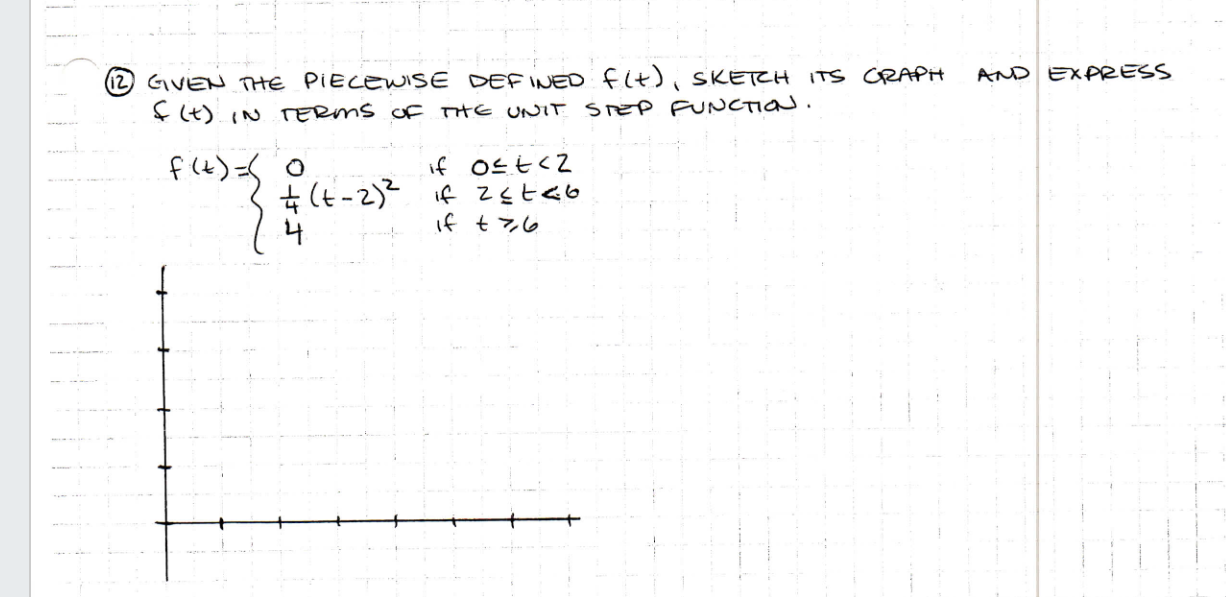 ⑫ GIVEN THE PIECEWISE DEFINED f(t), SKETCH ITS GRAPH AND EXPRESS
f(t) IN TERMS OF THE UNIT STEP FUNCTION.
f(t)={ 0 if 0≤t<2
1/4(t-2)² if 2≤t<6
4 if t≥6